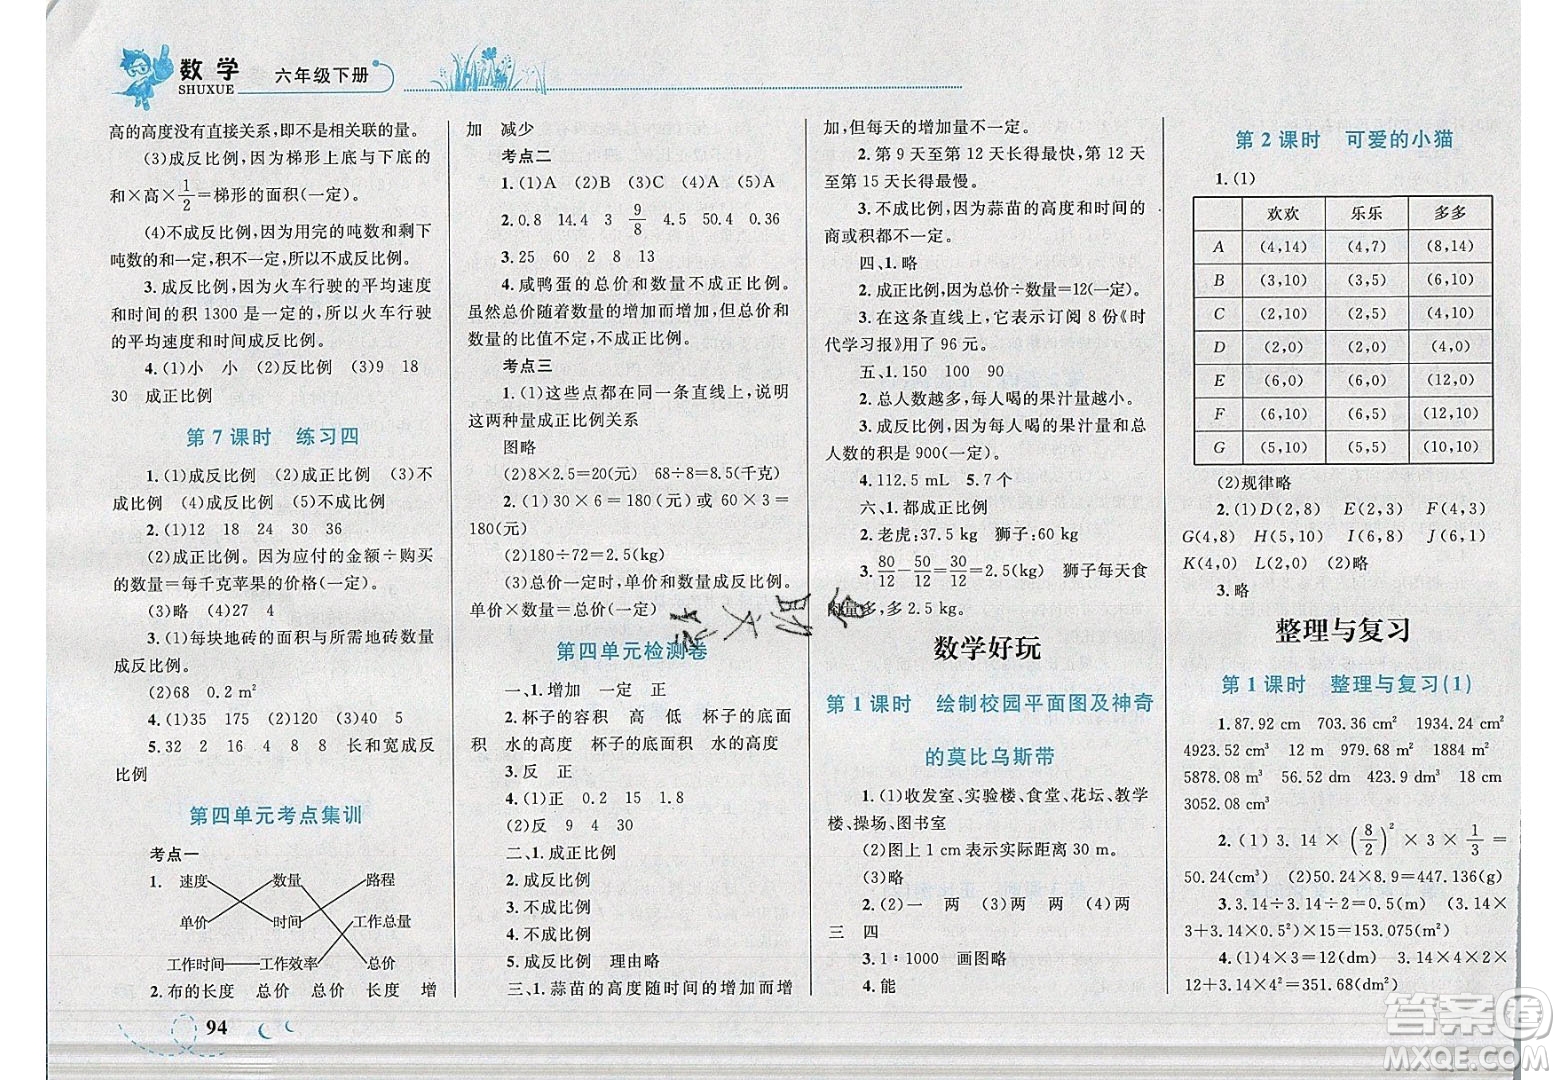 数学
SHUXUE
六年级下册
高的高度没有直接关系,即不是相关联的量。
(3)成反比例,因为梯形上底与下底的
和×高×1/2=梯形的面积(一定)。
(4)不成反比例,因为用完的吨数和剩下
吨数的和一定,积不一定,所以不成反比例。
3.成反比例,因为火车行驶的平均速度
和时间的积 1300 是一定的,所以火车行驶
的平均速度和时间成反比例。
4.(1)小 小 (2)反比例 (3)9 18
30 成正比例
第 7 课时 练习四
1.(1)成反比例 (2)成正比例 (3)不
成比例 (4)成反比例 (5)不成比例
2.(1)12 18 24 30 36
(2)成正比例。因为应付的金额÷购买
的数量=每千克苹果的价格(一定)。
(3)略 (4)27 4
3.(1)每块地砖的面积与所需地砖数量
成反比例。
(2)68 0.2 m²
4.(1)35 175 (2)120 (3)40
5.32 16 8 4 2 长和宽成反
比例
第四单元考点集训
考点一
1. 速度 数量 路程
单价 时间 工作总量
工作时间 工作效率 总价
2.布的长度 总价 总价 长度 增
94
加 减少
考点二
1.(1)A (2)B (3)C (4)A (5)A
2.0.8 14.4 3 9/8 4.5 50.4 0.36
3.25 60 2 8 13
4.咸鸭蛋的总价和数量不成正比例。
虽然总价随着数量的增加而增加,但总价和
数量的比值不定,不成正比例。
考点三
1.(1)这些点都在同一条直线上,说明
这两种量成正比例关系
图略
(2)8×2.5=20(元) 68÷8=8.5(千克)
2.(1)30×6=180(元)或 60×3=
180(元)
(2)180÷72=2.5(kg)
(3)总价一定时,单价和数量成反比例。
单价×数量=总价(一定)
第四单元检测卷
一、1.增加 一定 正
2.杯子的容积 高 低 杯子的底面
积 水的高度 杯子的底面积 水的高度
3.反 正
4.(1)正 0.2 15 1.8
(2)反 9 4 30
二、1.成正比例
2.成反比例
3.不成比例
4.不成比例
5.成反比例 理由略
三、1.蒜苗的高度随时间的增加而增
加,但每天的增加量不一定。
2.第 9 天至第 12 天长得最快,第 12 天
至第 15 天长得最慢。
3.不成比例,因为蒜苗的高度和时间的
商或积都不一定。
四、1.略
2.成正比例,因为总价÷数量=12(一定)。
3.在这条直线上,它表示订阅 8 份《时
代学习报》用了 96 元。
五、1.150 100 90
2.总人数越多,每人喝的果汁量越小。
3.成反比例。因为每人喝的果汁量和总
人数的积是 900(一定)。
4.112.5 mL 5.7 个
六、1.都成正比例
2.老虎:37.5 kg 狮子:60 kg
3.80/12-50/12=30/12=2.5(kg) 狮子每天食
量多,多 2.5 kg。
数学好玩
第 1 课时 绘制校园平面图及神奇
的莫比乌斯带
1.(1)收发室、实验楼、食堂、花坛、教学
楼、操场、图书室
(2)图上 1 cm 表示实际距离 30 m。
(3)略
2.(2)一 两 (3)两 (4)两
三 四
3.1∶1000 画图略
4.能
第 2 课时 可爱的小猫
1.(1)
欢欢 乐乐 多多
A (4,14) (4,7) (8,14)
B (3,10) (3,5) (6,10)
C (2,10) (2,5) (4,10)
D (2,0) (2,0) (4,0)
E (6,0) (6,0) (12,0)
F (6,10) (6,5) (12,10)
G (5,10) (5,5) (10,10)
(2)规律略
2.(1)D(2,8) E(2,3) F(4,3)
G(4,8) H(5,10) I(6,8) J(6,1)
K(4,0) L(2,0) (2)略
3.略
整理与复习
第 1 课时 整理与复习(1)
1.87.92 cm 703.36 cm² 1934.24 cm²
4923.52 cm³ 12 m 979.68 m² 1884 m²
5878.08 m³ 56.52 dm 423.9 dm³ 18 cm
3052.08 cm³
2.(1)3.14×(8/2)²×3×1/3=
50.24(cm³) (2)50.24×8.9=447.136(g)
3.3.14÷3.14÷2=0.5(m) (3.14×
3+3.14×0.5²)×15=153.075(m²)
4.(1)2×4=8(dm) 3.14×8×
12+3.14×4²=351.68(dm²)
答案圈
MXQE.COM